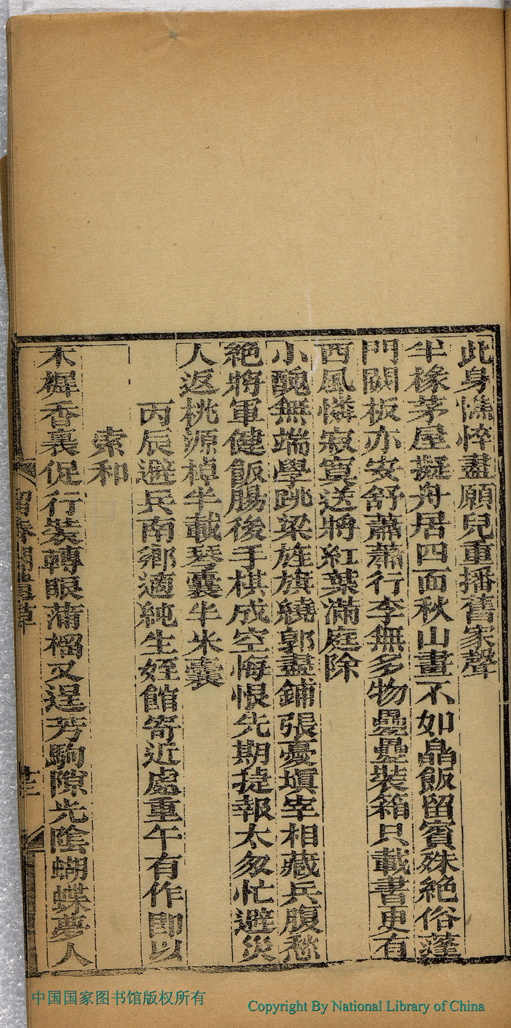 此身憔悴盡願兒重播舊家聲
半椽茅屋擬舟居四面秋山畫不如晶飯留賓殊絶俗蓬
門闢板亦安舒蕭蕭行李無多物疊疊裝箱只載書更有
西風憐寂寞送將紅葉滿庭除
小醜無端學跳梁旌旗繞郭盡鋪張憂塡宰相藏兵腹愁
絶將軍健飯腸後手棋成空悔恨先期捷報太忽忙避災
人返桃源棹半載琴囊半米囊
丙辰避兵南鄉適純生姪館寄近處重午有作即以
索和
木樨香裏促行裝轉眼蒲榴又逞芳駒隙光陰蝴蝶夢人
留香閣詩草
中国国家图书馆版权所有
Copyright By National Library of China